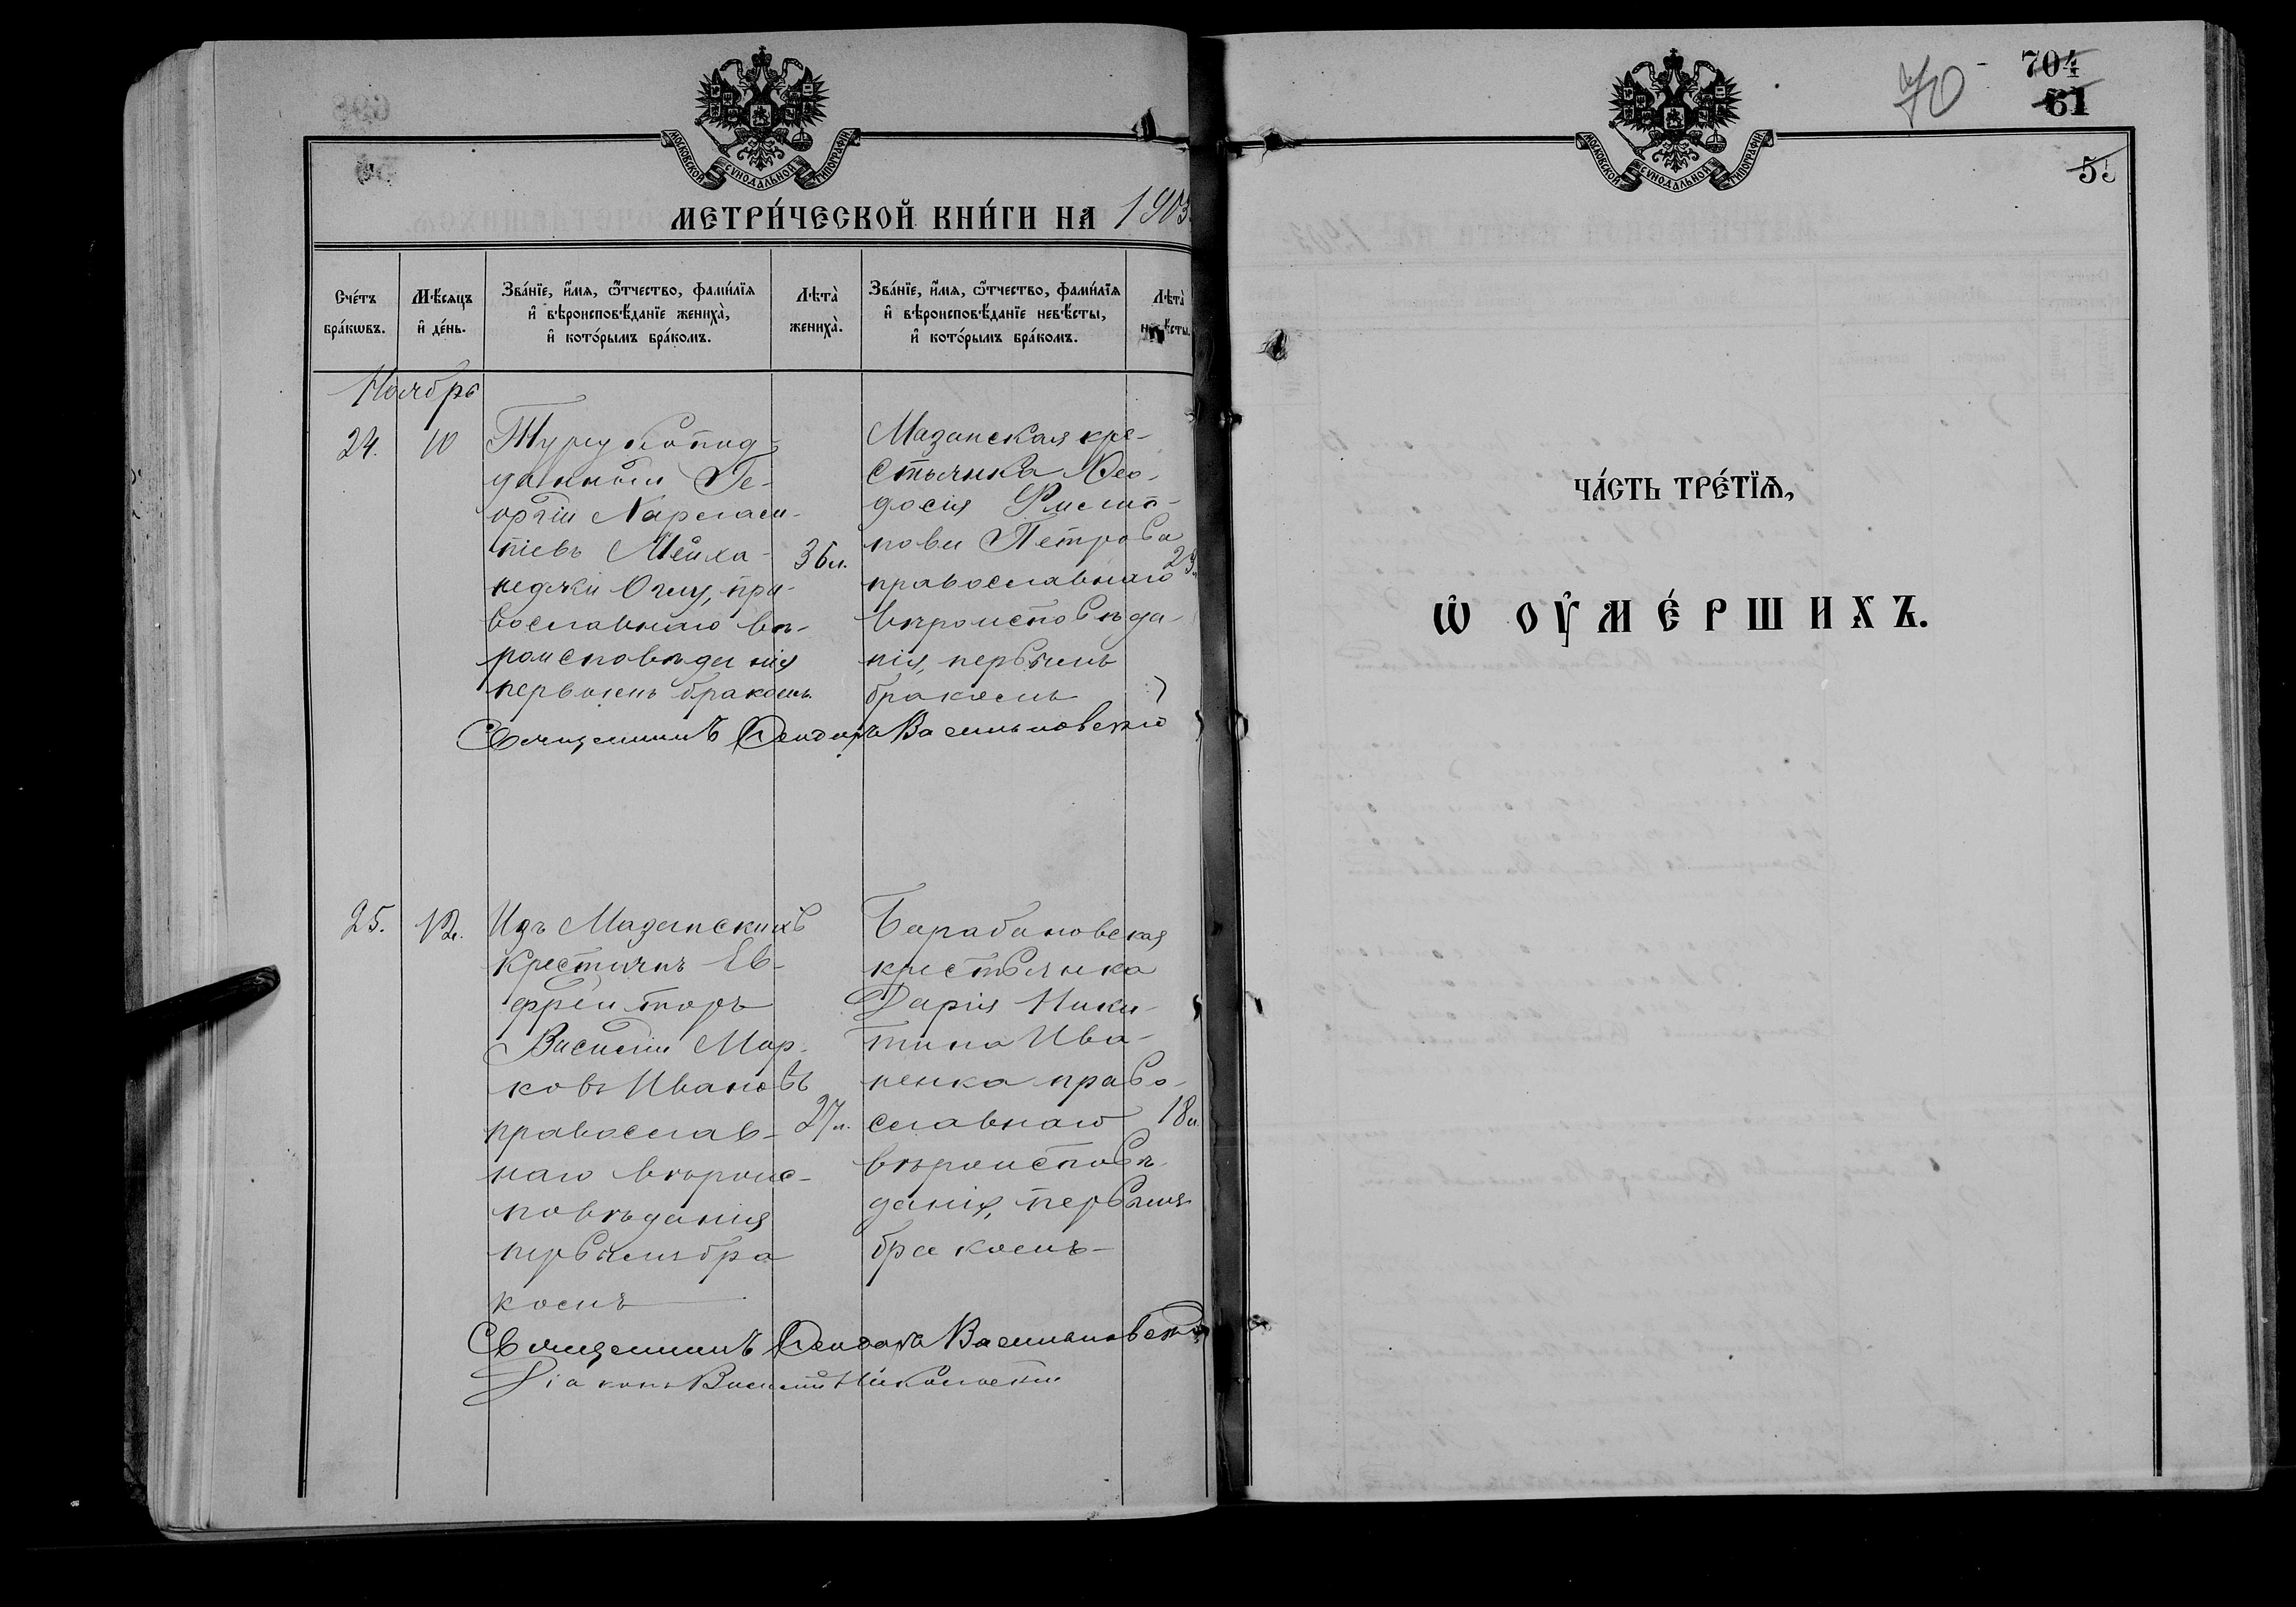 МОСКОВСКОЙ СѴНОДАЛЬНОЙ ТИПОГРАФІИ
МЕТРИ́ЧЕСКОЙ КНИ́ГИ НА 1903
Сче́тъ бра́кωвъ.
Мѣ́сяцъ и҆ де́нь.
Зва́нїе, и҆́мѧ, ѻ҆́тчество, фами́лїѧ и҆ вѣроисповѣ́данїе жениха̀, и҆ кото́рымъ бра́комъ.
Лѣта̀ жениха̀.
Зва́нїе, и҆́мѧ, ѻ҆́тчество, фами́лїѧ и҆ вѣроисповѣ́данїе невѣ́сты, и҆ кото́рымъ бра́комъ.
Лѣта̀ невѣ́сты.
Ноябрь
24.
10
Турукопод-
данный Ге-
оргій
36 л.
Оглу, пра-
вославнаго вѣ-
роисповѣданія
первымъ бракомъ.
Мазанская кре-
стьянка Ѳео-
досія Филип-
пова Петрова
православнаго
вѣроисповѣда-
нія, первымъ
бракомъ
23
Священникъ Ѳеодоръ Васильковскій
25.
12.
Изъ Мазанскихъ
крестьянъ Еф-
фрейторъ
Василій Мар-
ковъ Ивановъ
православ-
наго вѣроис-
повѣданія
первымъ бра
комъ
27 л.
Барабановская
крестьянка
Дарія Ники-
тина Ива-
ненка право-
славнаго
вѣроисповѣ-
данія, первымъ
бракомъ
18 л.
Священникъ Ѳеодоръ Васильковскій
Діаконъ Василій Никольскій
70
704
61
55
МОСКОВСКОЙ СѴНОДАЛЬНОЙ ТИПОГРАФІИ
ЧА́СТЬ ТРЕ́ТЇѦ,
Ѽ ОУ҆МЕ́РШИХЪ.